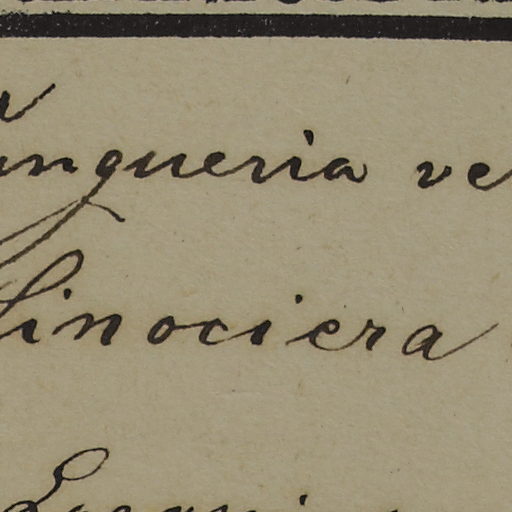 ungueria ve
Linociera